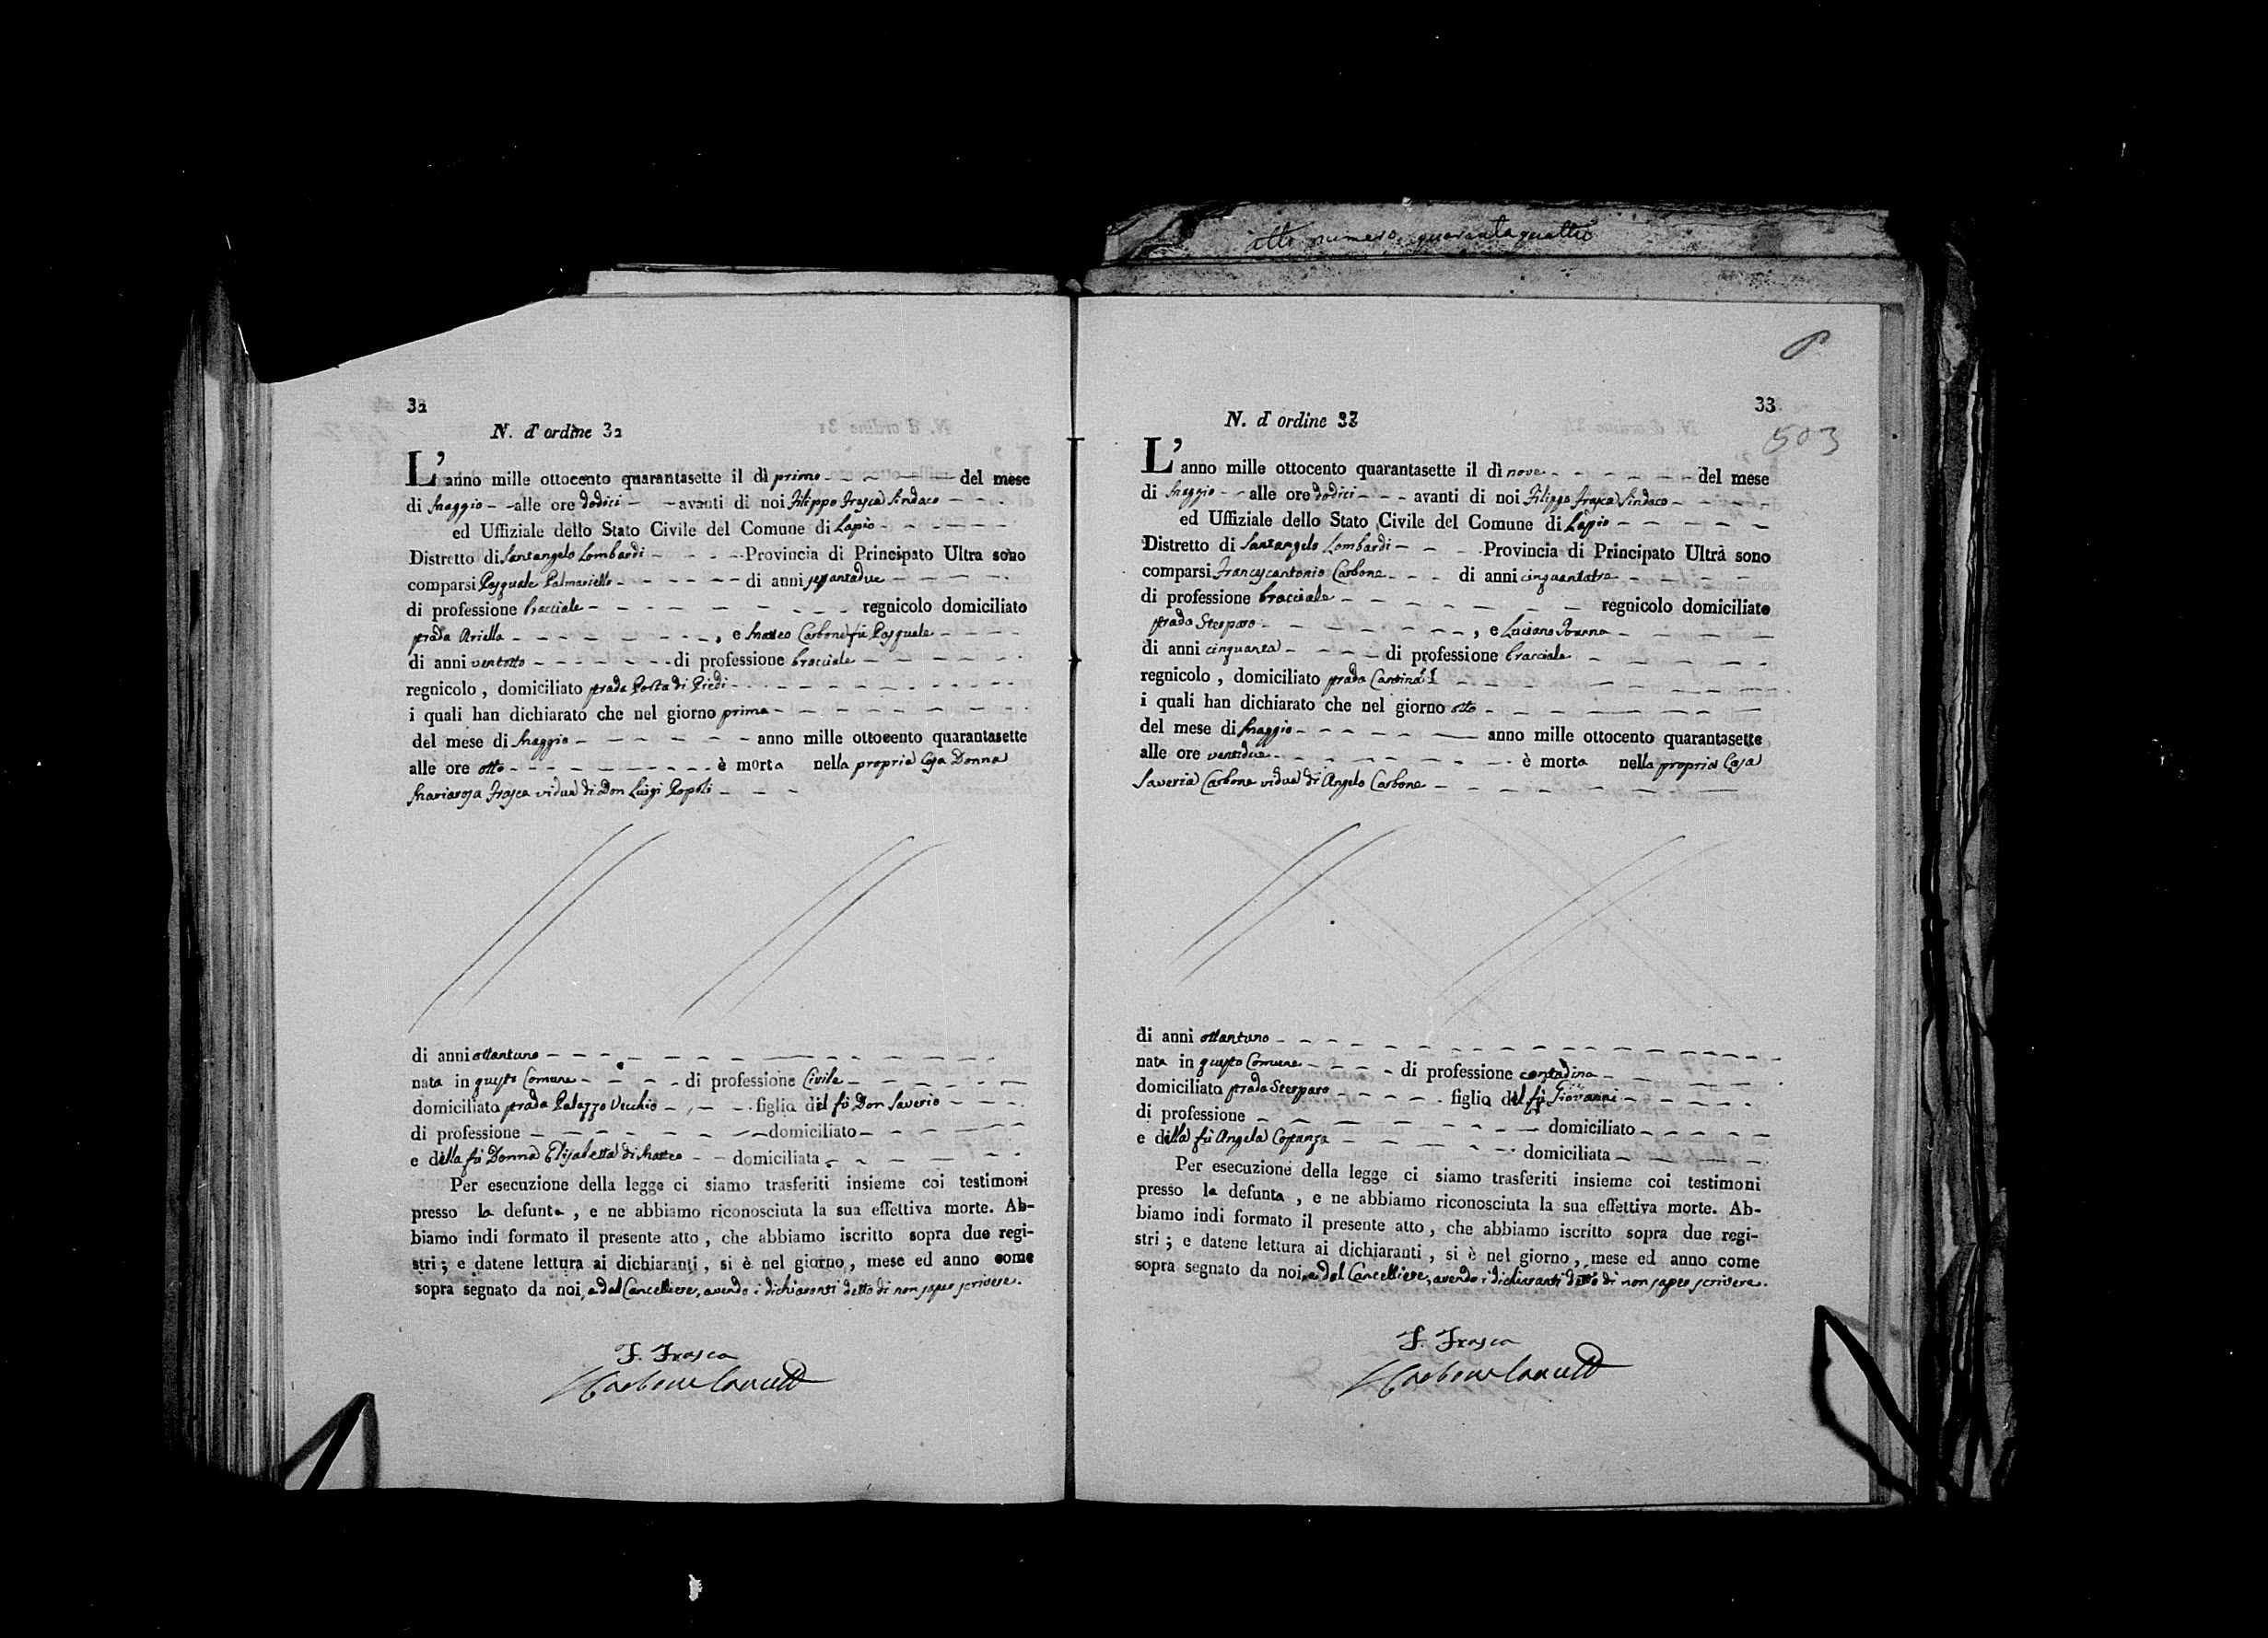 atto numero quarantaquattro
32
N. d'ordine 32
L'anno mille ottocento quarantasette il dì primo del mese
di Maggio alle ore dodici avanti di noi Filippo Frasca Sindaco
ed Uffiziale dello Stato Civile del Comune di Lapio
Distretto di Santangelo Lombardi Provincia di Principato Ultra sono
comparsi Pasquale Palmariello di anni settantadue
di professione bracciale regnicolo domiciliato
strada Ariella , e Matteo Carbone fù Pasquale
di anni ventotto di professione bracciale
regnicolo , domiciliato strada Porta di Piedi
i quali han dichiarato che nel giorno primo
del mese di Maggio anno mille ottocento quarantasette
alle ore otto è morta nella propria Casa Donna
Mariarosa Frasca vidua di Don Luigi Popoli
di anni ottantuno
nata in questo Comune di professione Civile
domiciliata strada Palazzo Vecchio figlia del fù Don Saverio
di professione domiciliato
e della fù Donna Elisabetta di Matteo domiciliata
Per esecuzione della legge ci siamo trasferiti insieme coi testimoni
presso la defunta , e ne abbiamo riconosciuta la sua effettiva morte. Ab-
biamo indi formato il presente atto , che abbiamo iscritto sopra due regi-
stri ; e datene lettura ai dichiaranti , si è nel giorno , mese ed anno come
sopra segnato da noi, e dal Cancelliere, avendo i dichiaranti detto di non saper scrivere.
F. Frasca
Carbone Cancell
33
503
N. d'ordine 33
L'anno mille ottocento quarantasette il dì nove del mese
di Maggio alle ore dodici avanti di noi Filippo Frasca Sindaco
ed Uffiziale dello Stato Civile del Comune di Lapio
Distretto di Santangelo Lombardi Provincia di Principato Ultra sono
comparsi Francescantonio Carbone di anni cinquantatre
di professione bracciale regnicolo domiciliato
strada Sterparo , e Luciano
di anni cinquanta di professione bracciale
regnicolo , domiciliato strada
i quali han dichiarato che nel giorno otto
del mese di Maggio anno mille ottocento quarantasette
alle ore ventidue è morta nella propria Casa
Saveria Carbone vidua di Angelo Carbone
di anni ottantuno
nata in questo Comune di professione contadina
domiciliata strada Sterparo figlia del fù Giovanni
di professione domiciliato
e della fù Angela Costanza domiciliata
Per esecuzione della legge ci siamo trasferiti insieme coi testimoni
presso la defunta , e ne abbiamo riconosciuta la sua effettiva morte. Ab-
biamo indi formato il presente atto , che abbiamo iscritto sopra due regi-
stri ; e datene lettura ai dichiaranti , si è nel giorno , mese ed anno come
sopra segnato da noi, e dal Cancelliere, avendo i dichiaranti detto di non saper scrivere.
F. Frasca
Carbone Cancell